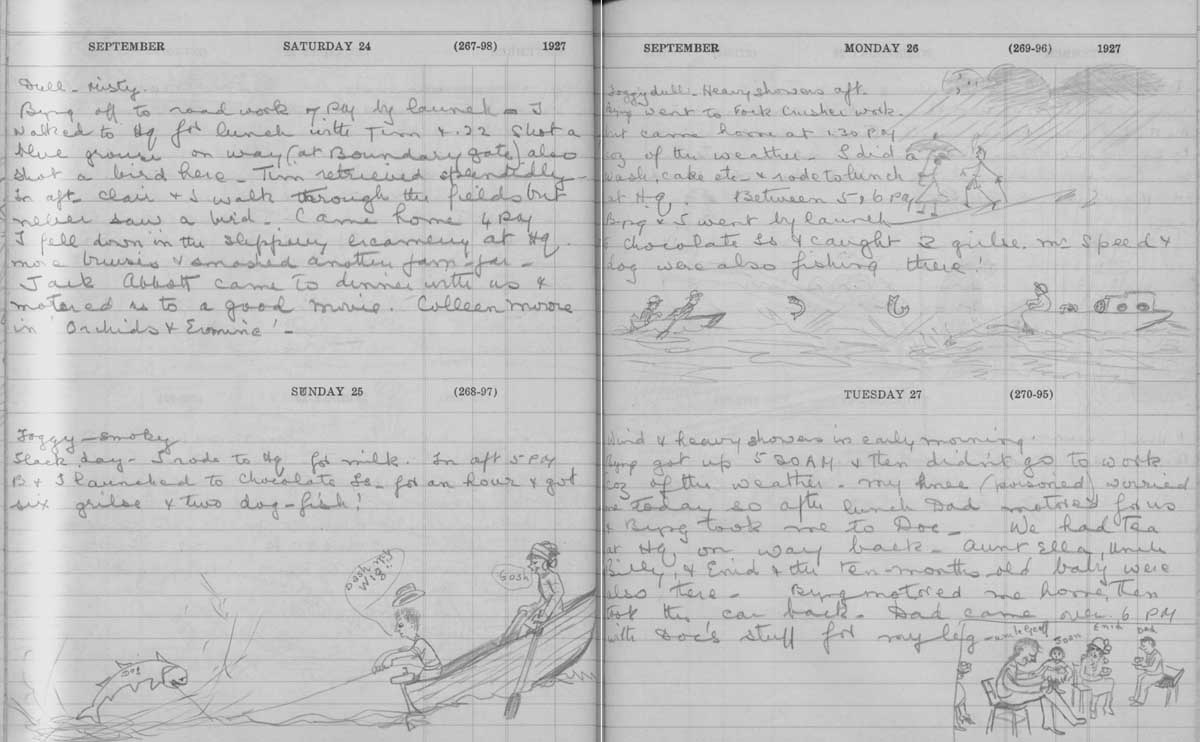 SEPTEMBER SATURDAY 24 (267-98) 1927
Dull - misty.
Byng off to road work 7 PM by launch - I
walked to Hq for lunch with Tim & .22 Shot a
blue grouse on way (at Boundary gate) also
shot a bird here - Tim retrieved splendidly -
In aft. Clair & I walk through the fields but
never saw a bird. Came home 4 PM
I fell down in the slippery creamery at Hq.
more bruises & smashed another jam-jar -
Jack Abbott came to dinner with us &
motored us to a good movie. Colleen Moore
in 'Orchids & Ermine' -
SUNDAY 25 (268-97)
Foggy - smoky
Slack day - I rode to Hq for milk. In aft 5 PM
B & I launched to Chocolate Is - for an hour & got
six grilse & two dog-fish!
Gosh it's big!
Gosh
Dog
SEPTEMBER MONDAY 26 (269-96) 1927
Foggy dull - Heavy showers aft.
Byng went to Fork Crusher work.
but came home at 1.30 PM
coz of the weather - I did a
wash, cake etc - & rode to lunch
at Hq. Between 5, 6 PM
Byng & I went by launch
to Chocolate Is & caught 2 grilse. Mc Speed &
dog were also fishing there!
TUESDAY 27 (270-95)
Wind & heavy showers in early morning.
Byng got up 5 30 AM & then didn't go to work
coz of the weather - My knee (poisoned) worried
me today so after lunch Dad motored for us
& Byng took me to Doc - We had tea
at Hq on way back - Aunt Ella, Uncle
Billy, & Enid & the ten-months-old baby were
also there - Byng motored me home, then
took the car back. Dad came over 6 PM
with Doc's stuff for my leg -
Uncle Geoff Joan Enid Dad